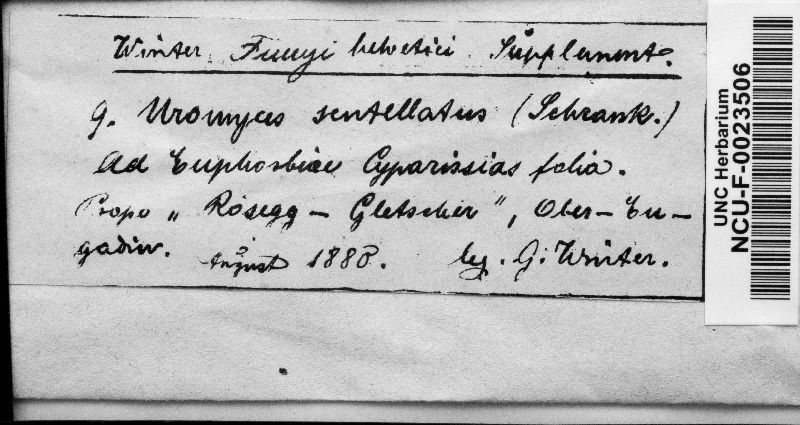 Winter Fungi helvetici Supplement.
9. Uromyces scutellatus (Schrank.)
Ad Euphorbiae Cyparissias folia.
Prope „ Rosegg – Gletscher ”, Ober – En –
gadin. August 1880. leg. G. Winter.
UNC Herbarium
NCU-F-0023506